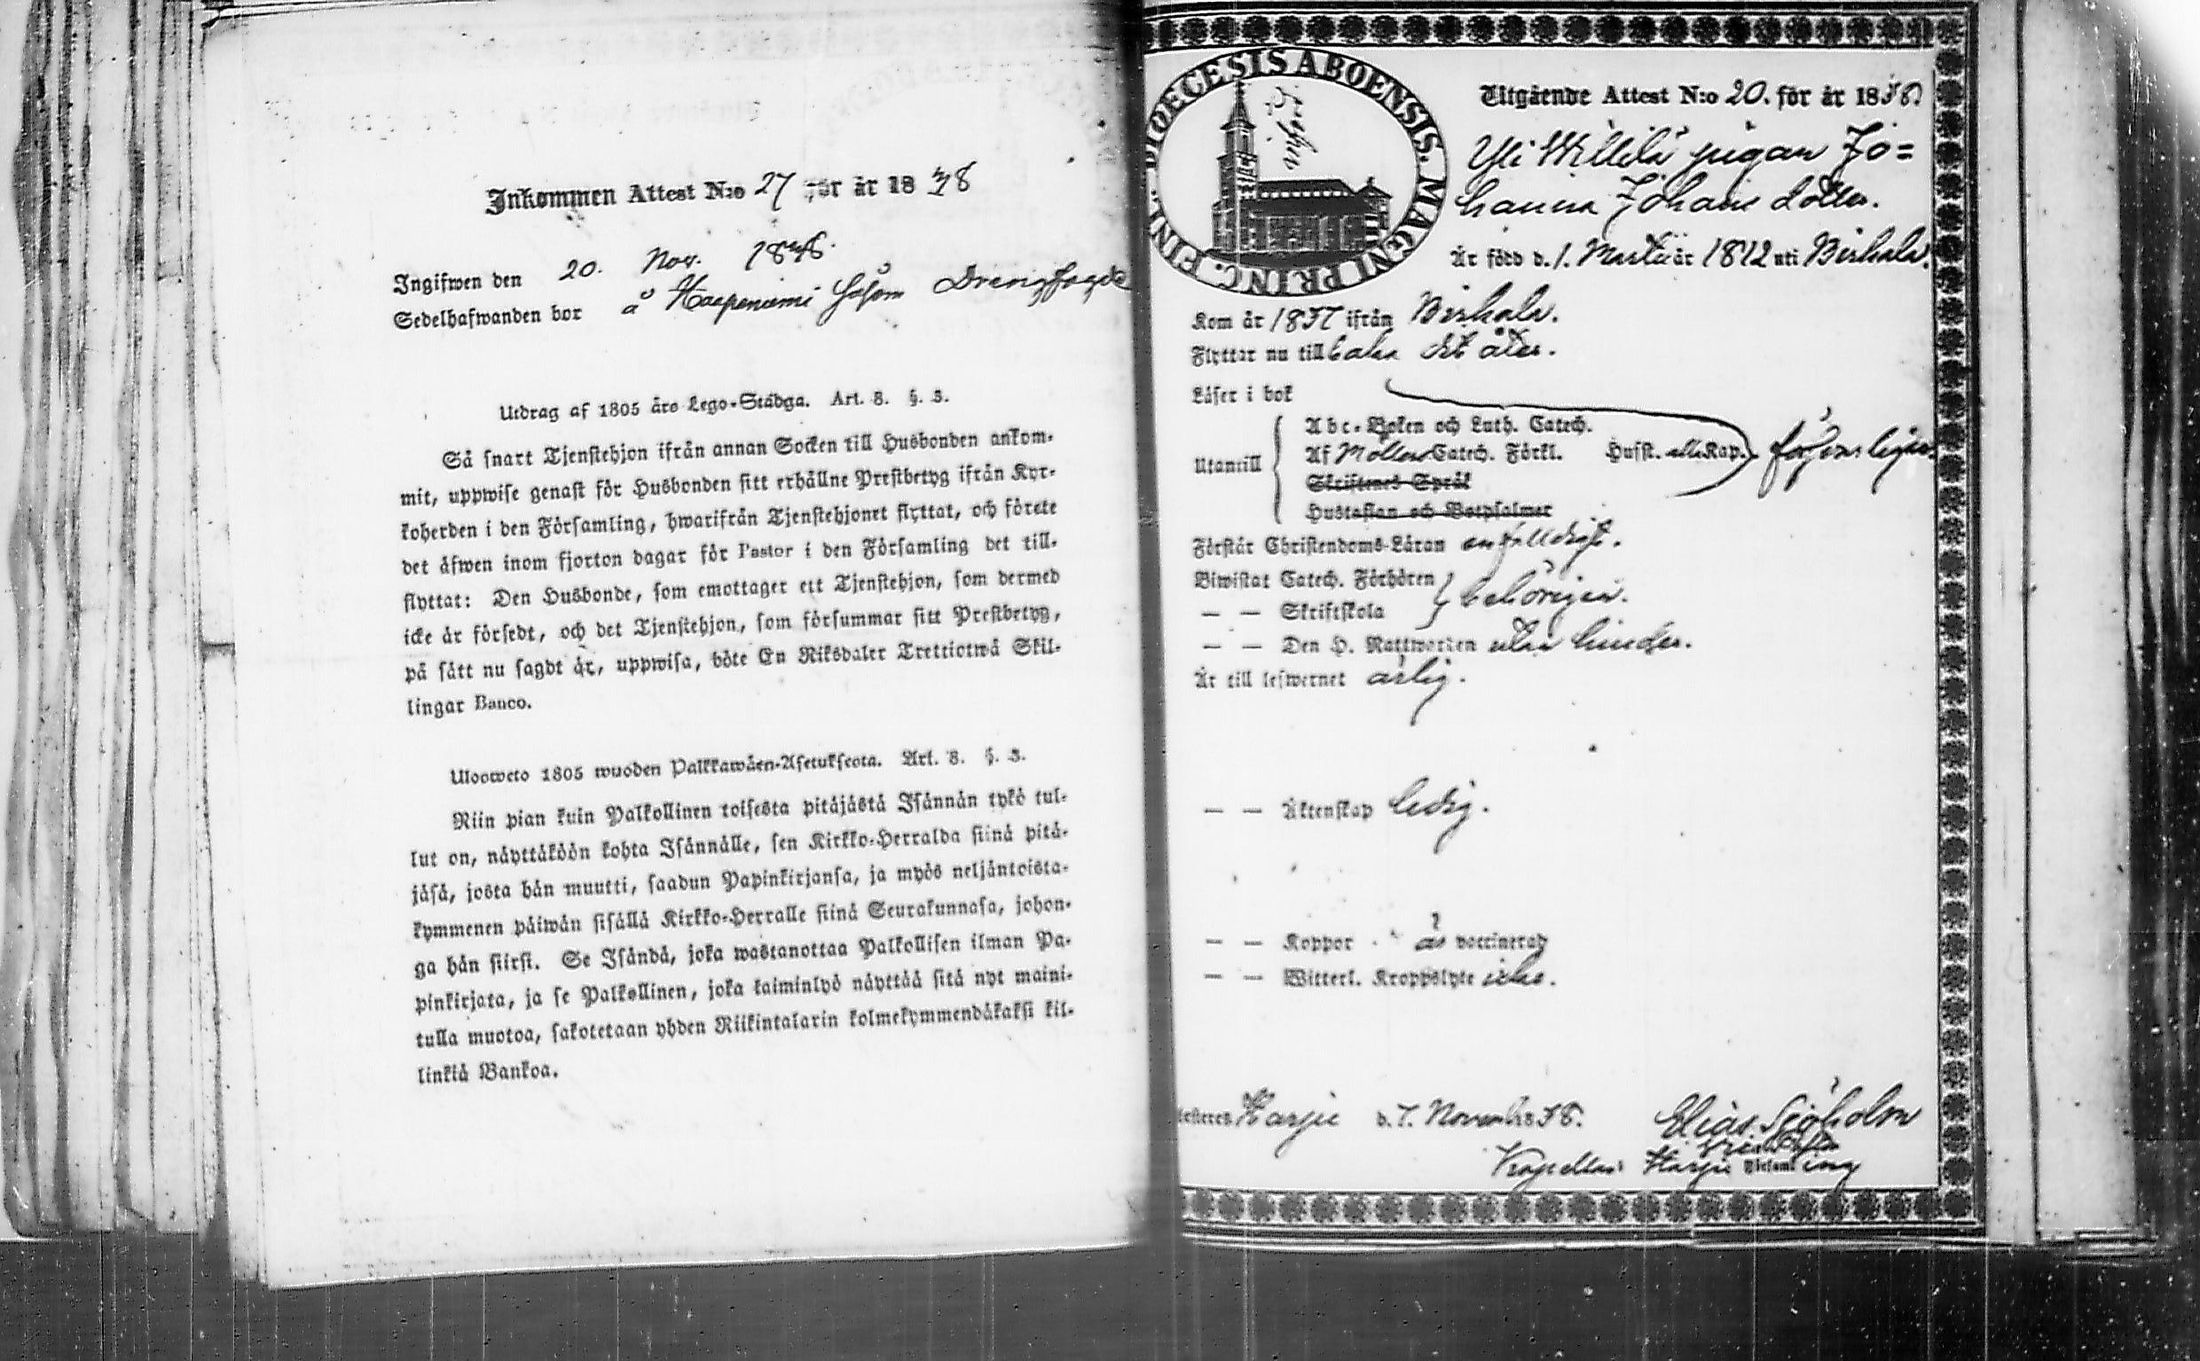 Inkommen Attest N:o 27 för år 1838
Ingifwen den 20. Nov. 1838.
Sedelhafwanden bor å Haapaniemi såsom Drengfogde
Utdrag af 1805 års Lego-Stådga. Art. 8. §. 3.
Så snart Tjenstehjon ifrån annan Socken till Husbonden ankom-
mit, uppwise genast för Husbonden sitt erhållne Prestbetyg ifrån Kyr-
koherden i den Församling, hwarifrån Tjenstehjonet flyttat, och förete
det äfwen inom fjorton dagar för Pastor i den Församling det till-
flyttat: Den Husbonde, som emottager ett Tjenstehjon, som dermed
icke är försedt, och det Tjenstehjon, som försummar sitt Prestbetyg,
på sätt nu sagdt är, uppwisa, böte En Riksdaler Trettiotwå Skil-
lingar Banco.
Ulosweto 1805 wuoden Palkkawäen-Asetuksesta. Art. 8. §. 3.
Niin pian kuin Palkollinen toisesta pitäjästä Isännän tykö tul-
lut on, näyttäköön kohta Isännälle, sen Kirkko-Herralda siinä pitä-
jäsä, josta hän muutti, saadun Papinkirjansa, ja myös neljäntoista-
kymmenen päiwän sisällä Kirkko-Herralle siinä Seurakunnasa, johon-
ga hän siirsi. Se Isändä, joka wastanottaa Palkollisen ilman Pa-
pinkirjata, ja se Palkollinen, joka laiminlyö näyttää sitä nyt maini-
tulla muotoa, sakotetaan yhden Riikintalarin kolmekymmendäkaksi kil-
linkiä Bankoa.
DIOECESIS ABOENSIS. MAGNI PRINC. FINL.
Utgående Attest N:o 20. för år 1838
Yli Willilä pigan Jo=
hanna Johans dotter.
Är född d. 1. Martii år 1812 uti Birkala.
Kom år 1837 ifrån Birkala.
Flyttar nu tillbaka dit åter.
Läser i bok
Utantill
Abc-Boken och Luth. Catech.
Af Möllers Catech. Förkl. Husst. alla Kap. försvarligen
Skriftenes Språk
Hustaflan och Botpsalmer
Förstår Christendoms-Läran enfalldigt.
Biwistat Catech. Förhören
— — Skriftskola behörigen.
— — Den H. Nattwarden utan hinder.
Är till lefwernet ärlig.
— — Äktenskap ledig.
— — Koppor är vaccinerad
— — Witterl. Kroppslyte icke.
Harju d. 7. Novemb. 1838. Elias Sjöholm
Kapellan i Harju Församling